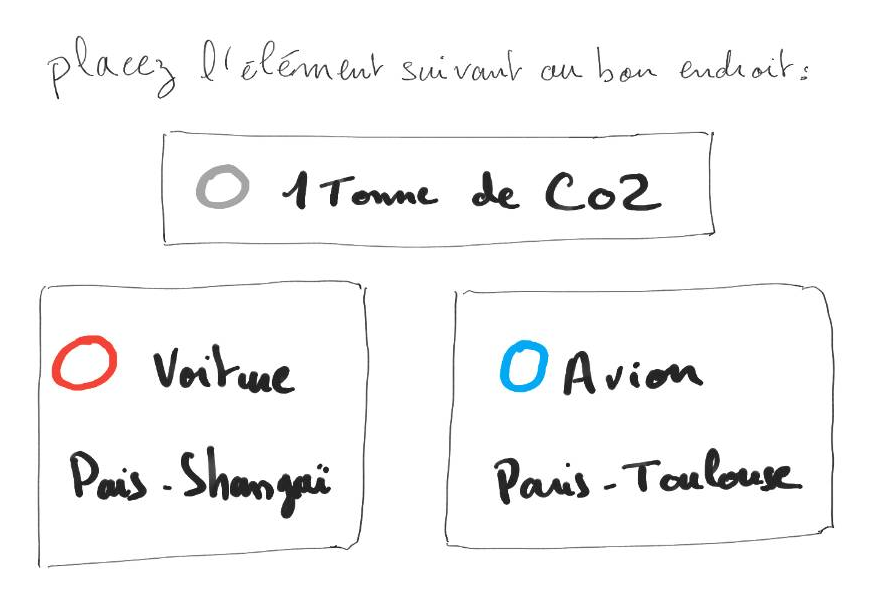 placez l'élément suivant au bon endroit:
1 Tonne de Co2
Voiture
Paris-Shangaï
Avion
Paris-Toulouse